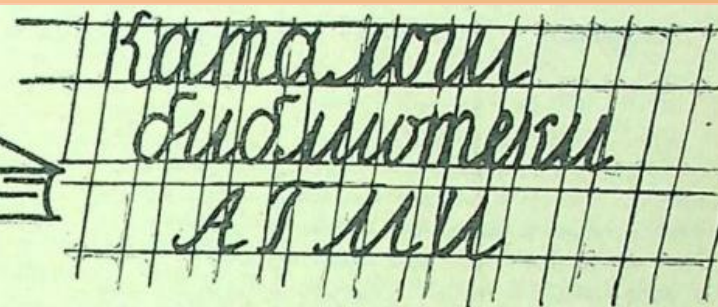 Каталоги
библиотеки
АГМИ